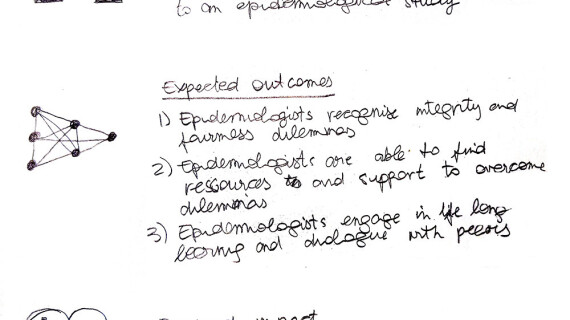 to an epidemiological study
Expected outcomes
1) Epidemiologists recognise integrity and
fairness dilemmas
2) Epidemiologists are able to find
ressources to and support to overcome
dilemmas
3) Epidemiologists engage in life long
learning and dialogue with peers